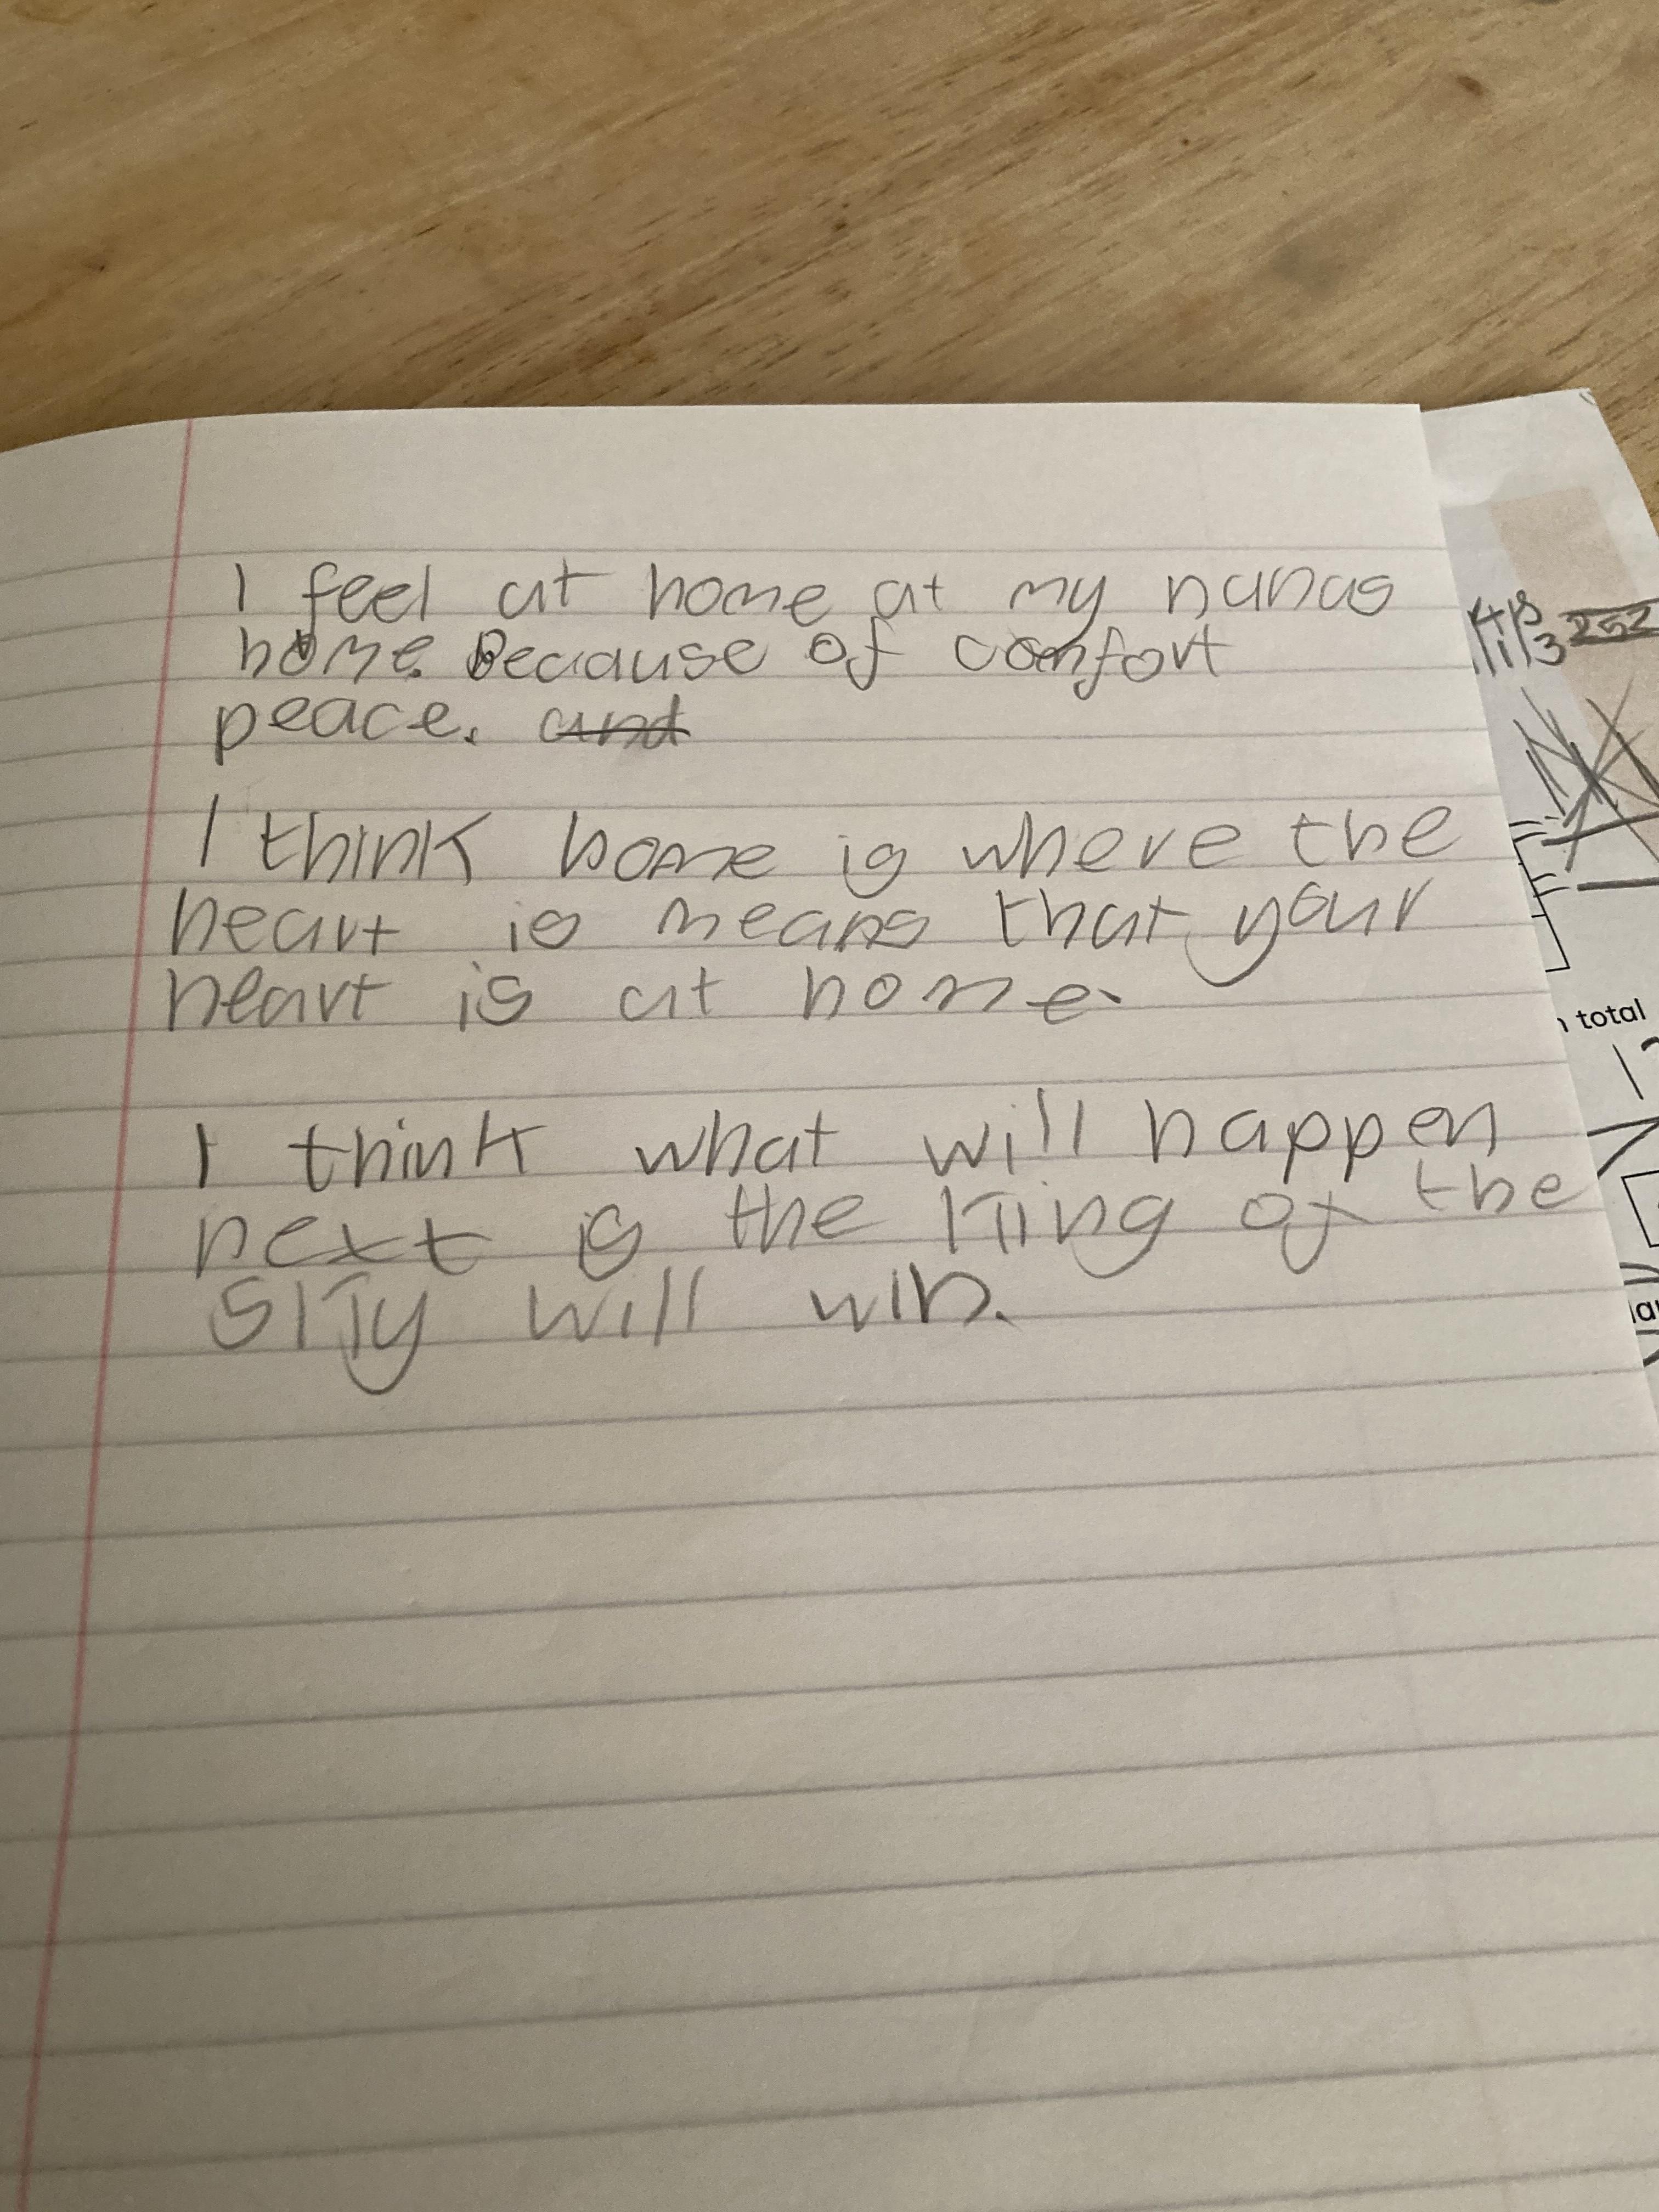 I feel at home at my nanas
home. Because of comfort
peace. and
I think home is where the
heart is means that your
heart is at home.
I think what will happen
next is the King of the
sky will win.
252
total